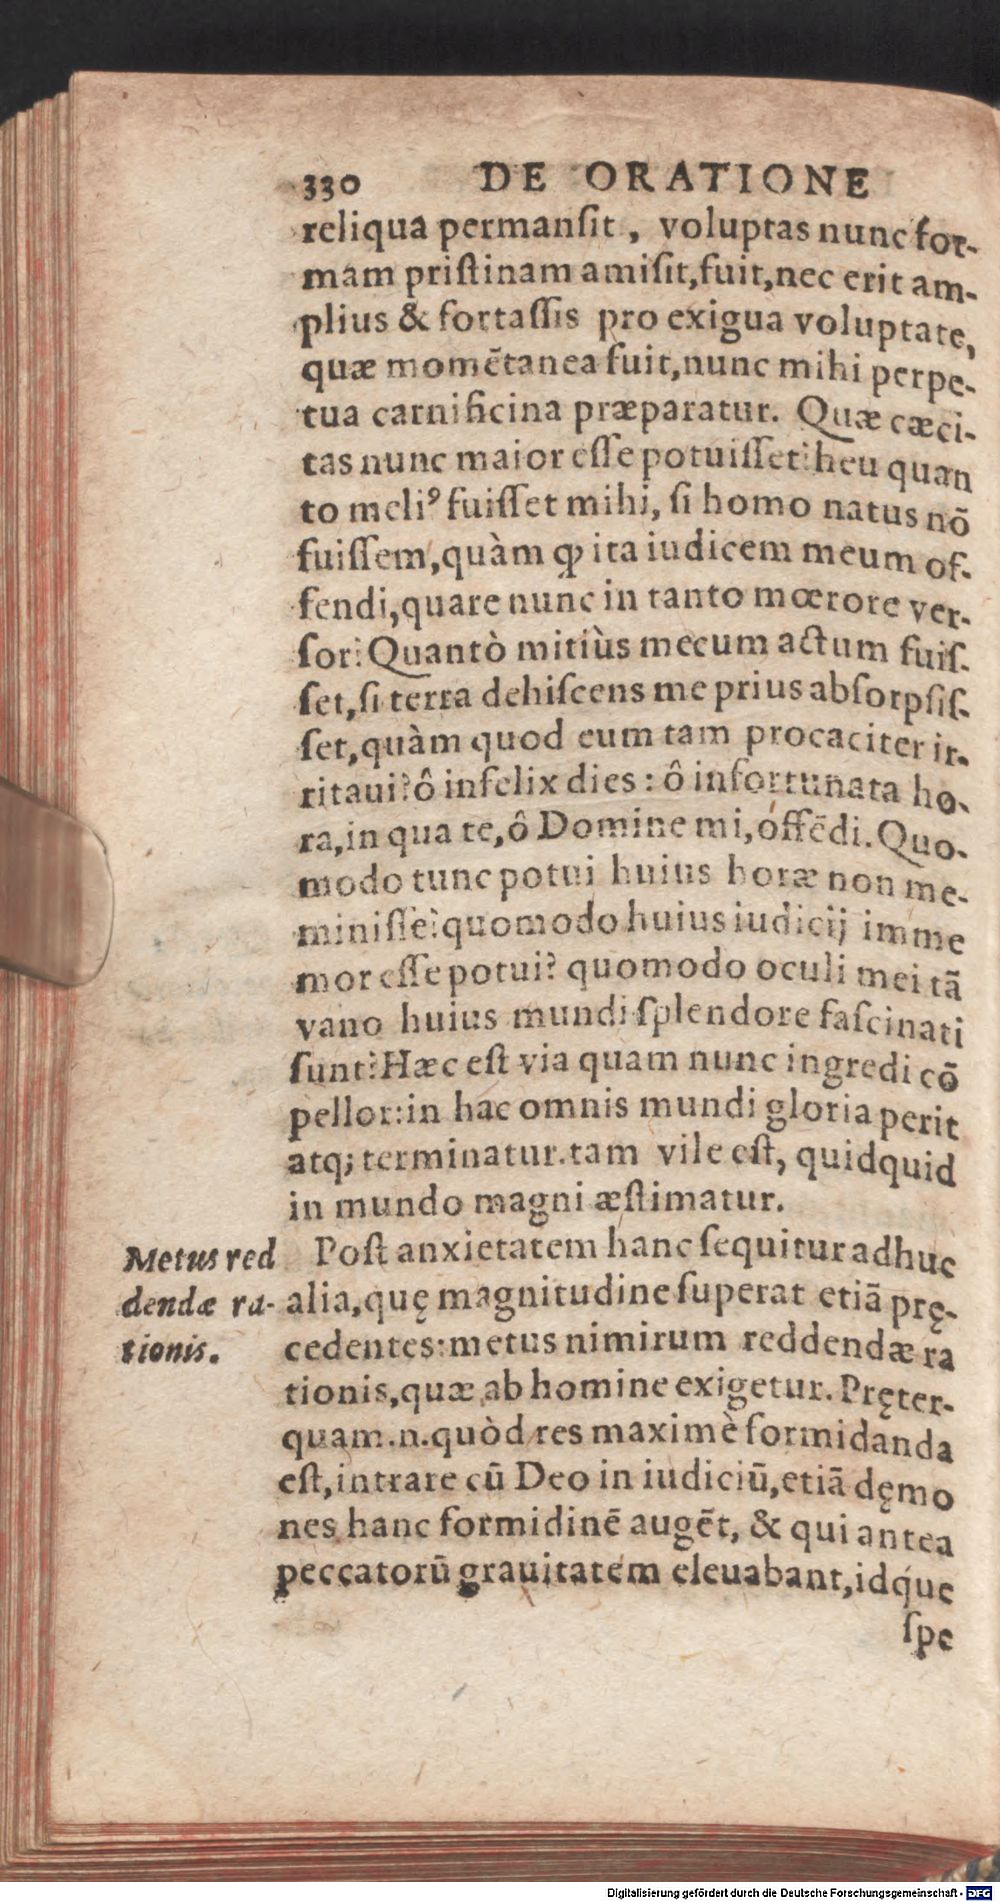 330 DE ORATIONE
reliqua permanſit, voluptas nunc for-
mam priſtinam amiſit, fuit, nec erit am-
plius & fortaſſis pro exigua voluptate,
quæ momẽtanea fuit, nunc mihi perpe-
tua carnificina præparatur. Quæ cæci-
tas nunc maior eſſe potuiſſet? heu quan
to meliꝰ fuiſſet mihi, ſi homo natus nõ
fuiſſem, quàm ꝙ ita iudicem meum of-
fendi, quare nunc in tanto mœrore ver-
ſor? Quantò mitiùs mecum actum fuiſ-
ſet, ſi terra dehiſcens me prius abſorpſiſ-
ſet, quàm quod eum tam procaciter ir-
ritaui? ô infelix dies: ô infortunata ho-
ra, in qua te, ô Domine mi, offẽdi. Quo-
modo tunc potui huius horæ non me-
miniſſe? quomodo huius iudicij imme
mor eſſe potui? quomodo oculi mei tã
vano huius mundi ſplendore faſcinati
ſunt? Hæc eſt via quam nunc ingredi cõ
pellor: in hac omnis mundi gloria perit
atq; terminatur. tam vile eſt, quidquid
in mundo magni æſtimatur.
Metus red
dendæ ra-
tionis.
Poſt anxietatem hanc ſequitur adhuc
alia, quę magnitudine ſuperat etiã prę-
cedentes: metus nimirum reddendæ ra
tionis, quæ ab homine exigetur. Pręter-
quam .n. quòd res maximè formidanda
eſt, intrare cũ Deo in iudiciũ, etiã dęmo
nes hanc formidinẽ augẽt, & qui antea
peccatorũ grauitatem eleuabant, idque
ſpe
Digitalisierung gefördert durch die Deutsche Forschungsgemeinschaft - DFG